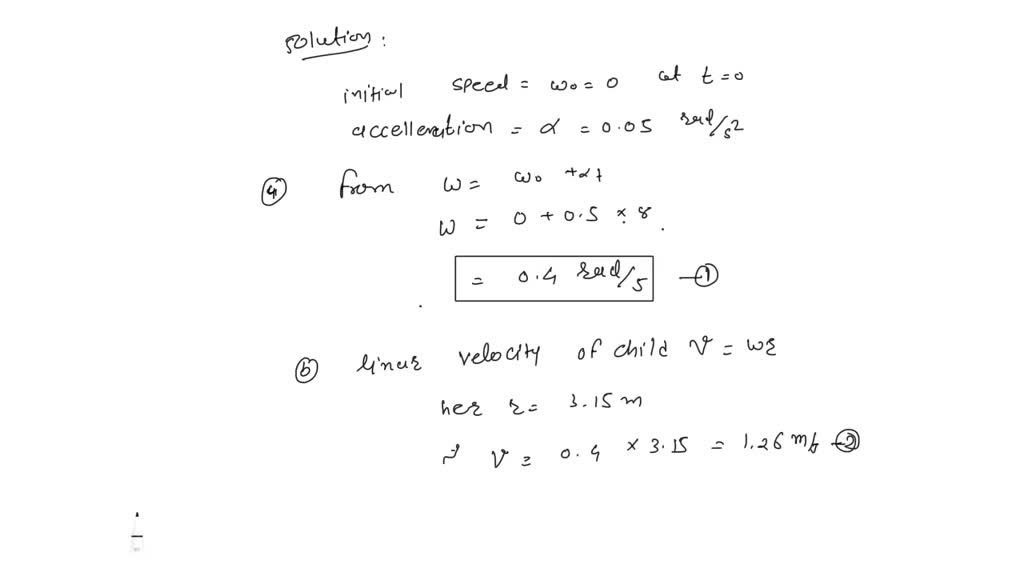 solution :
initial speed = ω₀ = 0 at t = 0
accelleration = α = 0.05 rad/s2
(a) from ω = ω₀ + αt
ω = 0 + 0.5 × 8 .
= 0.4 rad/s —①
(b) linear velocity of child v = ωr
her r = 3.15 m
v = 0.4 × 3.15 = 1.26 m/s —②